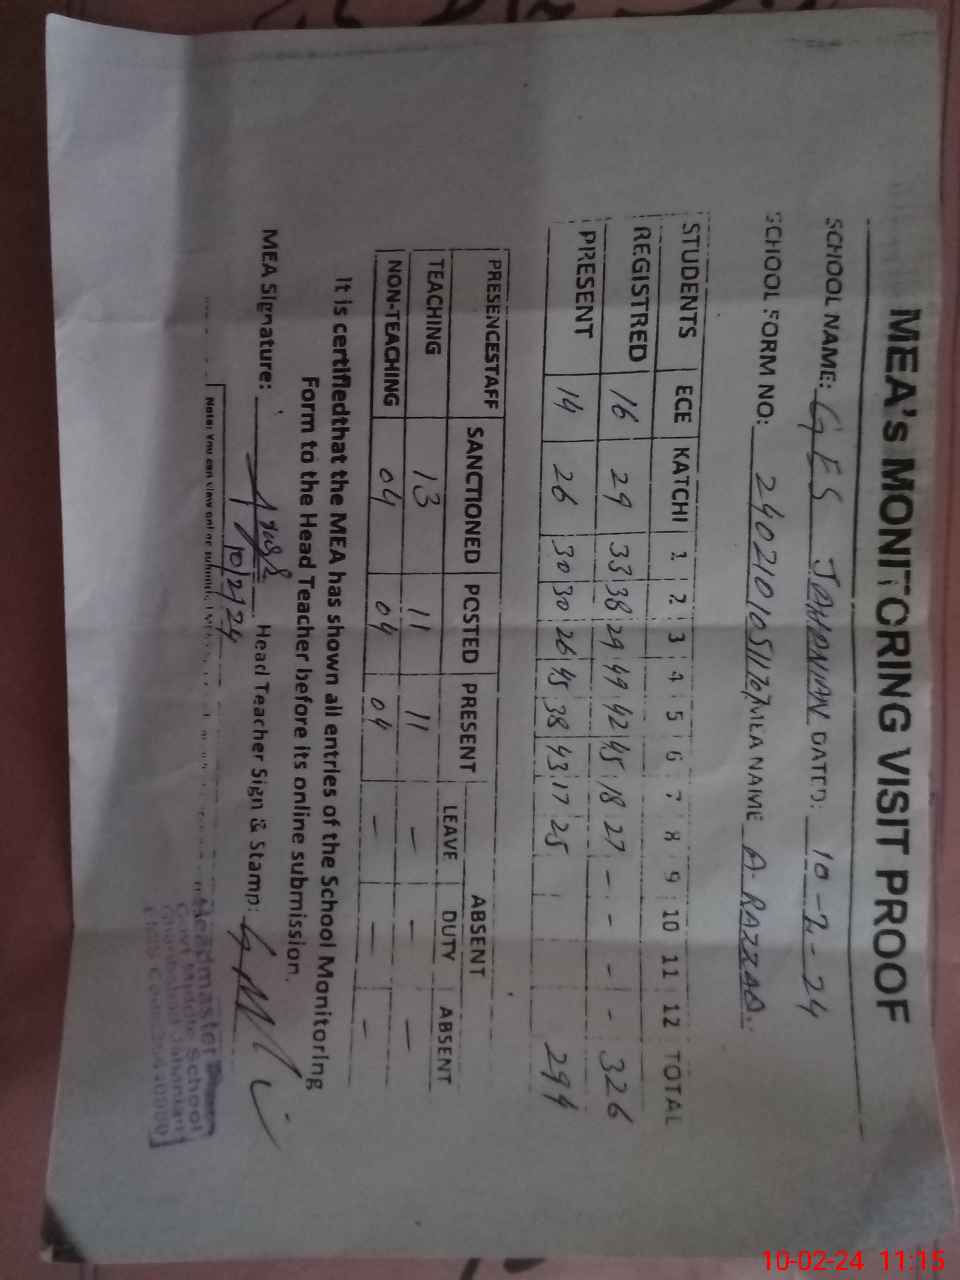 MEA's MONITORING VISIT PROOF
SCHOOL NAME: GES JAHANIAN DATED: 10-2-24
SCHOOL FORM NO: MEA NAME A. RAZZAQ.
STUDENTS ECE KATCHI 1 2 3 4 5 6 7 8 9 10 11 12 TOTAL
REGISTRED 16 29 33 38 29 49 42 45 18 27 - - - - 326
PRESENT 14 26 30 30 26 45 38 43 17 25 294
PRESENCESTAFF SANCTIONED POSTED PRESENT ABSENT
LEAVE DUTY ABSENT
TEACHING 13 11 11 - - -
NON-TEACHING 04 04 04 - - -
It is certifiedthat the MEA has shown all entries of the School Monitoring
Form to the Head Teacher before its online submission.
MEA Signature: Head Teacher Sign & Stamp:
10/2/24
Note: You can view online submitted
Headmaster
Govt Middle School
Jahanian
10-02-24 11:15